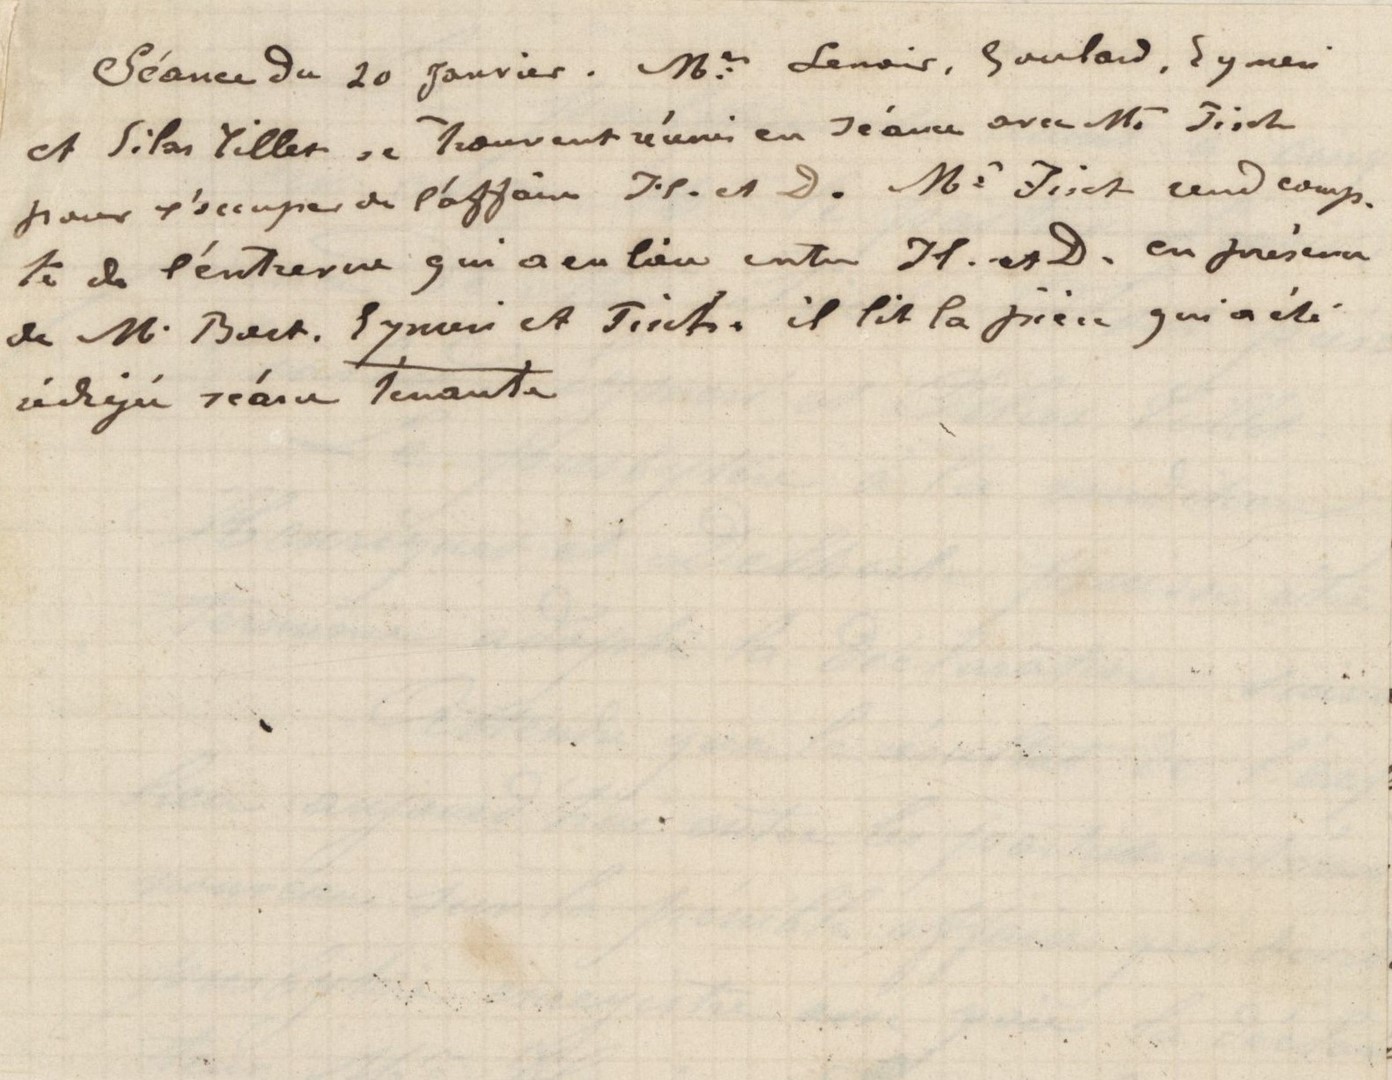 Séance du 20 Janvier. Mrs. Lenoir, Goulard, Eymeri
et Silas Villet se trouvent réunis en séance avec Mr. Fisch
pour s'occuper de l'affaire H. et D. Mr. Fisch rend comp-
te de l'entrevue qui a eu lieu entre H. et D. en présence
de M. Bost. Eymeri et Fisch. il lit la pièce qui a été
rédigée séance tenante